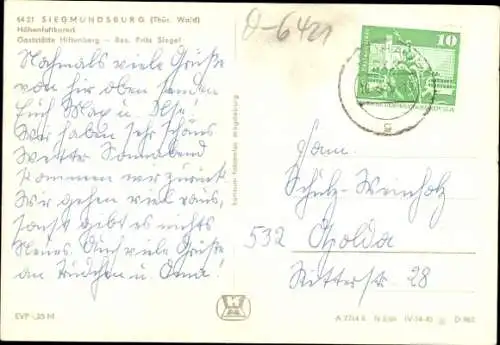 6421 SIEGMUNDSBURG (Thür. Wald)
Höhenluftkurort
Gaststätte Hiftenberg – Bes. Fritz Siegel
O-6421
10
Nochmals viele Grüße
von hier oben senden
Euch Max u. Ilse!
Wir haben sehr schönes
Wetter. Sonnabend
kommen wir zurück.
Wir gehen viel raus,
sonst gibt es nichts
Neues. Auch viele Grüße
an Trudchen u. Oma!
Fam.
Schütz-Weinholz
532 Apolda
Ritterstr. 28
EVP -,20 M